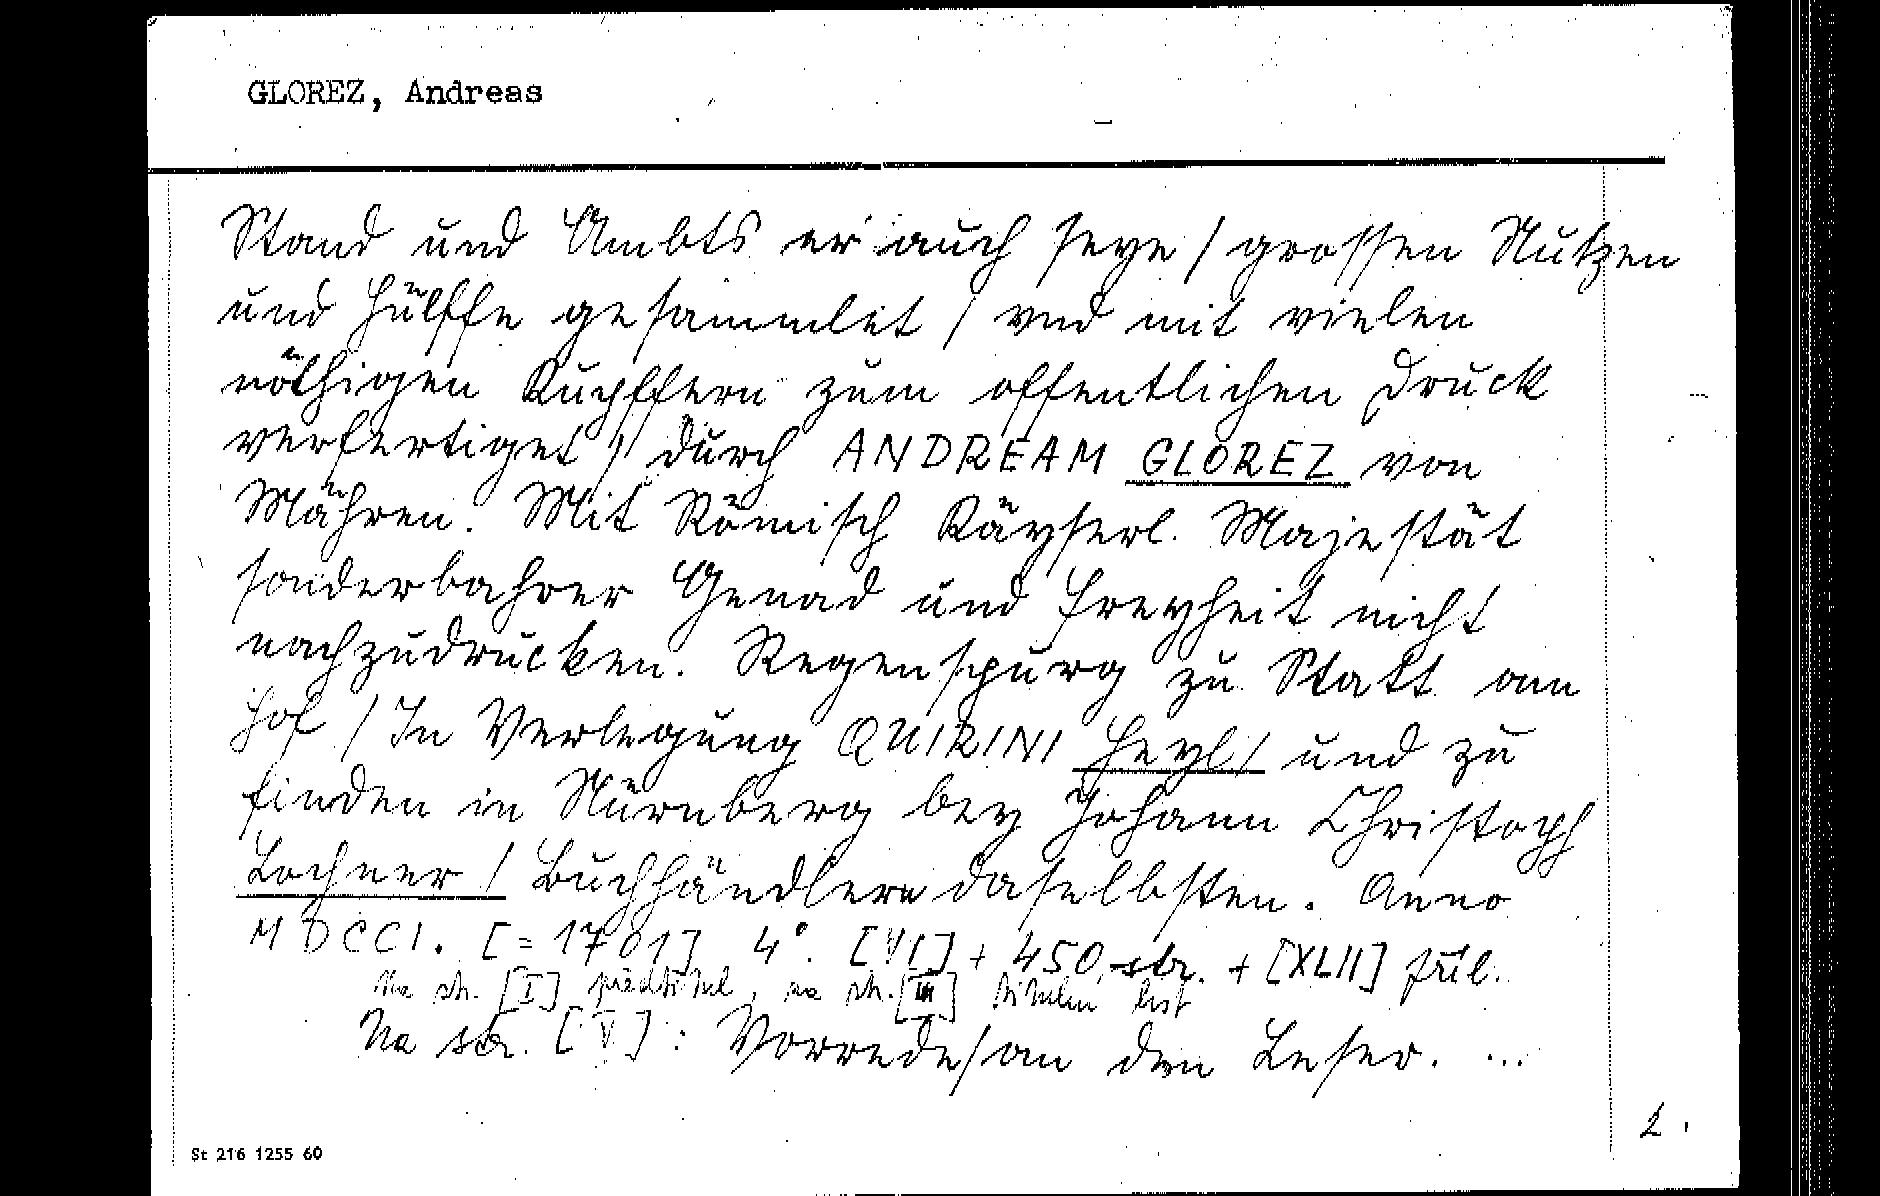 GLOREZ, Andreas
Stand und Ambts er auch seye / grossen Nutzen
und Hülffe gesammlet / vnd mit vielen
nöthigen Kupffern zum offentlichen Druck
verfertiget / durch ANDREAM GLOREZ von
Mähren. Mit Römisch Käyserl. Majestät
sonderbahrer Genad und Freyheit nicht
nachzudrucken. Regenspurg zu Statt am
Hof / In Verlegung QUIRINI Heyl / und zu
finden in Nürnberg bey Johann Christoph
Lochner / Buchhändlern daselbsten. Anno
MDCCI. [= 1701] 4°. [VI] + 450 str. + [XLII] příl.
Na str. [I] předtitul, na str. [III] titulní list
Na str. [V]: Vorrede / an den Leser. ...
2.
St 216 1255 60